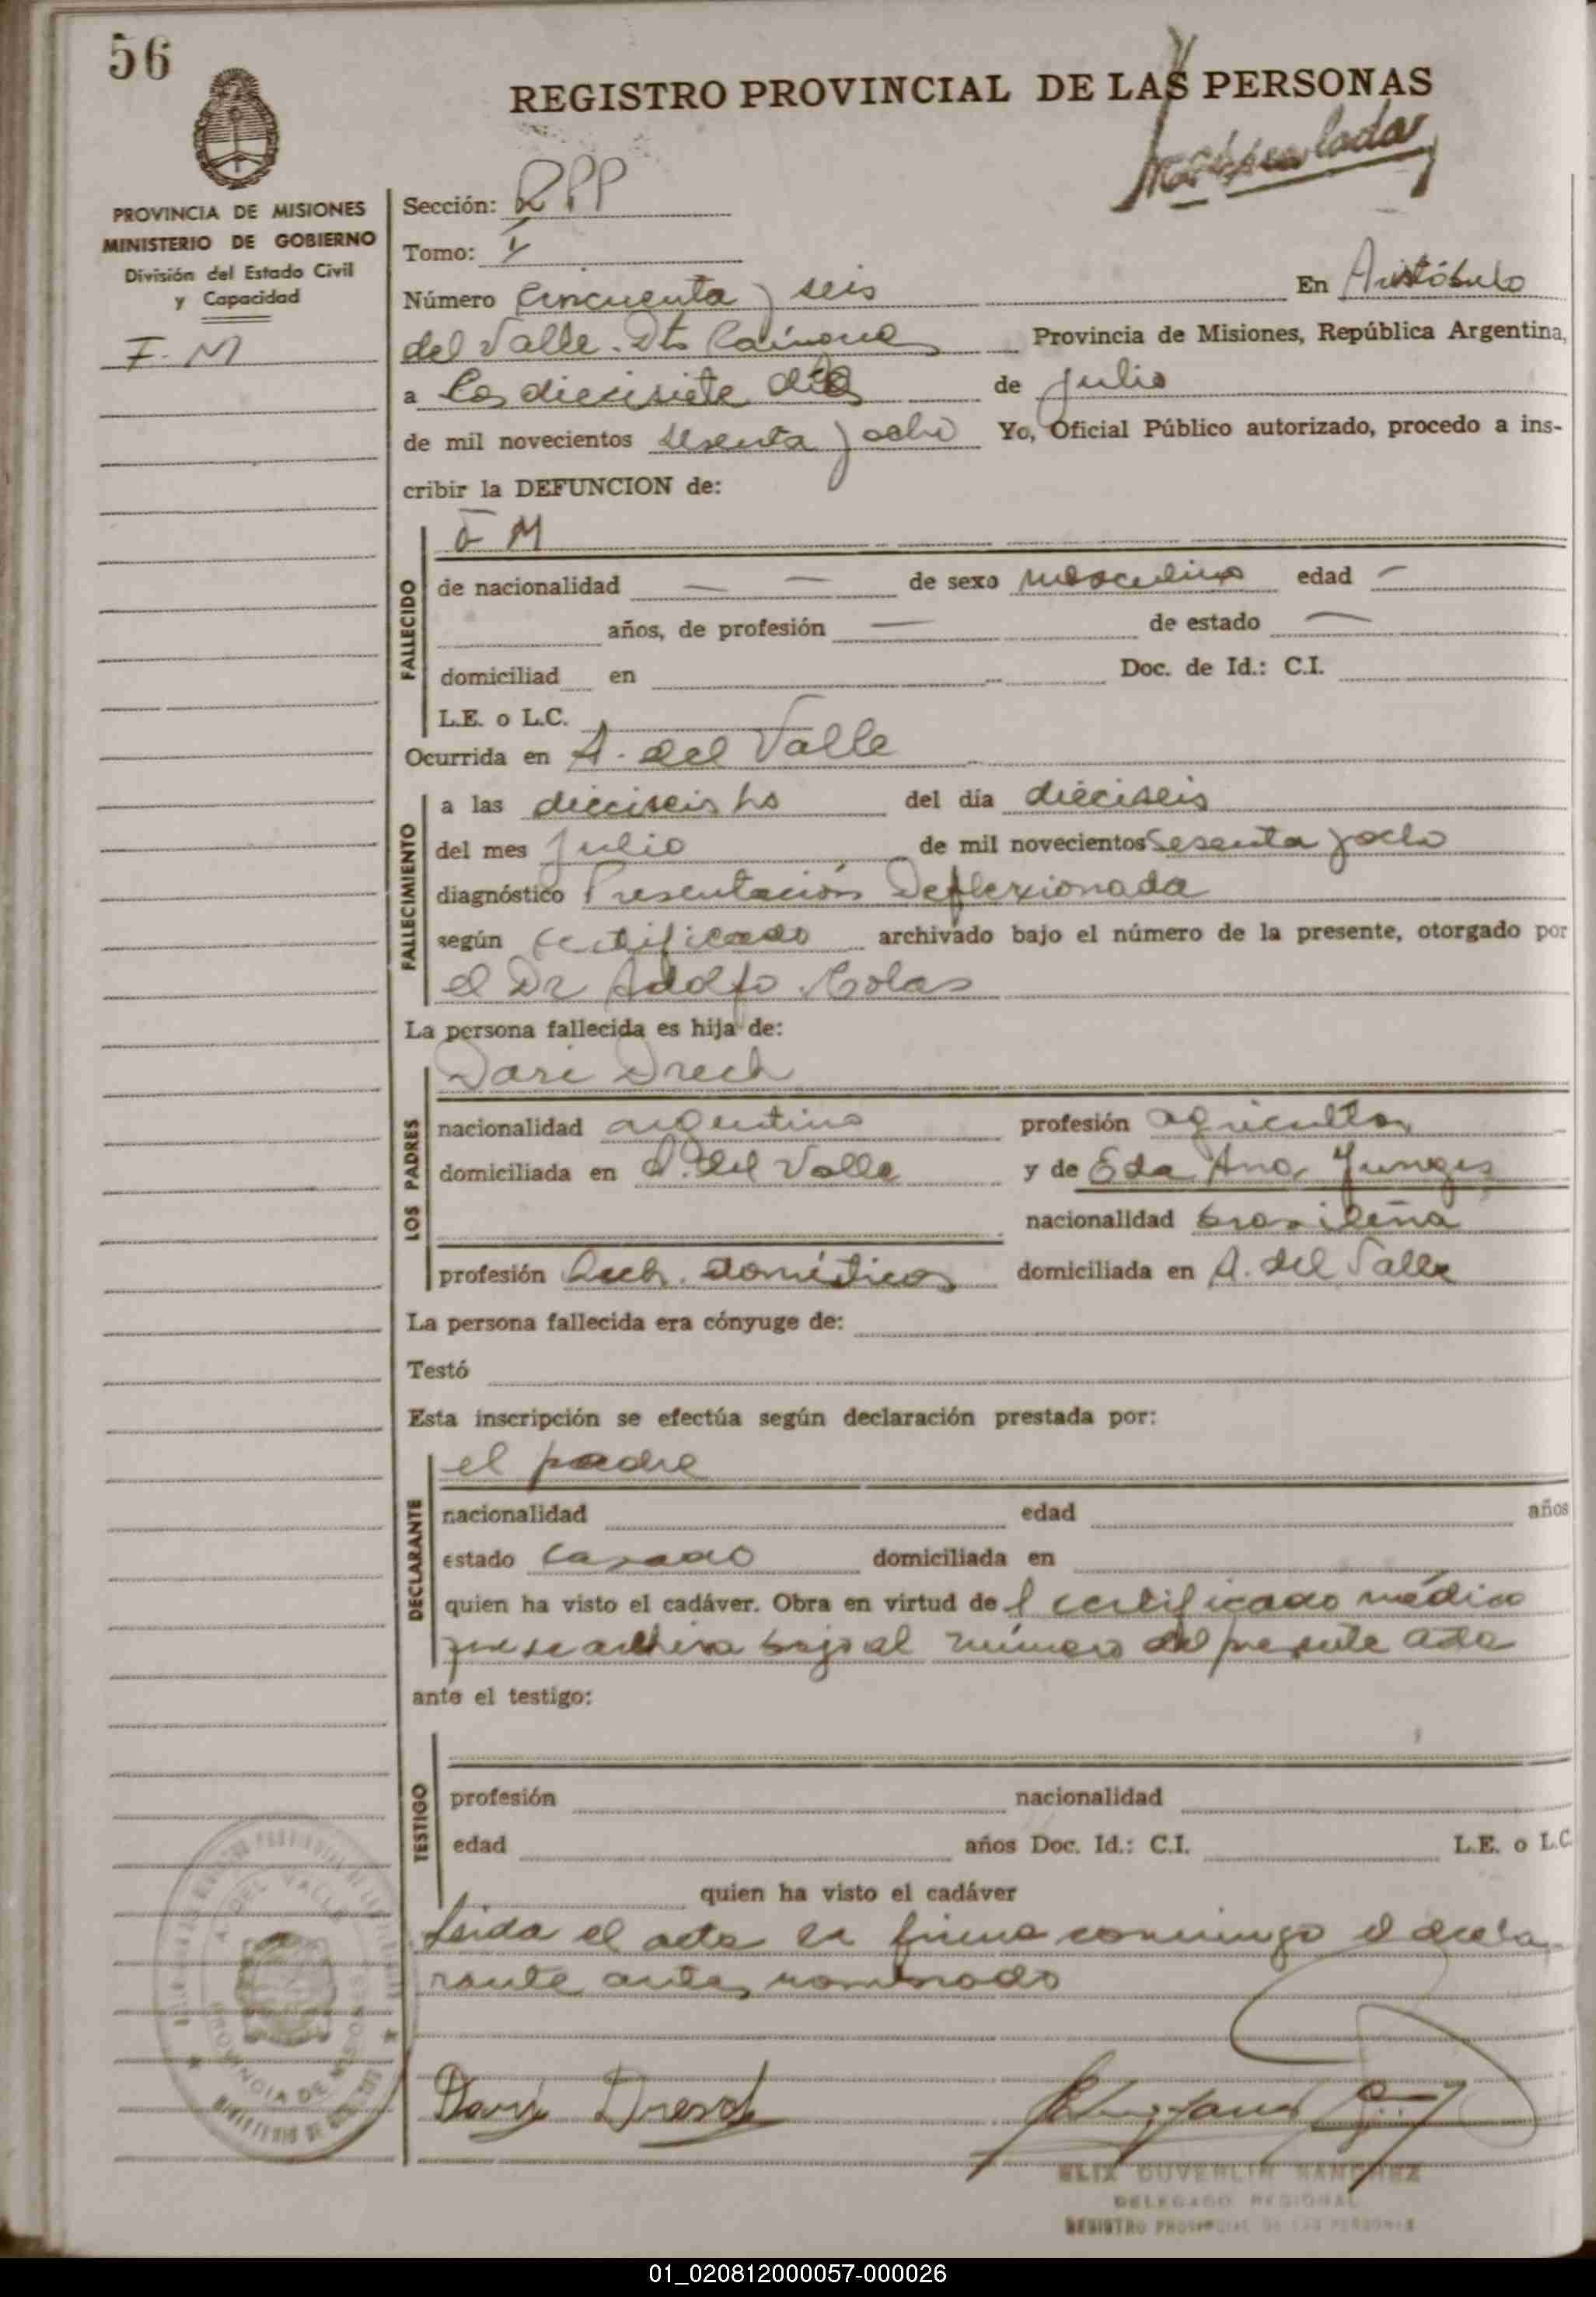 56
REGISTRO PROVINCIAL DE LAS PERSONAS
PROVINCIA DE MISIONES
MINISTERIO DE GOBIERNO
División del Estado Civil
y Capacidad
F. M
Sección: RPP
Tomo: I
Número Cincuenta y seis En Aristóbulo
del Valle. Dto Cainguas Provincia de Misiones, República Argentina,
a los diecisiete días de julio
de mil novecientos sesenta y ocho Yo, Oficial Público autorizado, procedo a ins-
cribir la DEFUNCION de:
FALLECIDO
F M
de nacionalidad — — de sexo masculino edad —
años, de profesión — de estado —
domiciliad en Doc. de Id.: C.I.
L.E. o L.C.
Ocurrida en A. del Valle
FALLECIMIENTO
a las dieciseis hs del día dieciseis
del mes Julio de mil novecientos Sesenta y ocho
diagnóstico Presentación Deflexionada
según certificado archivado bajo el número de la presente, otorgado por
el Dr Adolfo
La persona fallecida es hija de:
LOS PADRES
Dari Drech
nacionalidad argentino profesión agricultor
domiciliada en A. del Valle y de Eda Ana Junges
nacionalidad brasileña
profesión domésticos domiciliada en A. del Valle
La persona fallecida era cónyuge de:
Testó
Esta inscripción se efectúa según declaración prestada por:
DECLARANTE
el padre
nacionalidad edad años
estado casado domiciliada en
quien ha visto el cadáver. Obra en virtud de l certificado médico
que se archiva bajo el número del presente acta
ante el testigo:
TESTIGO
profesión nacionalidad
edad años Doc. Id.: C.I. L.E. o L.C
quien ha visto el cadáver
Leida el acta la firma conmigo el decla-
rante antes nombrado
A. DEL VALLE
PROVINCIA DE MISIONES
Dari Dresch
DELEGADO REGIONAL
REGISTRO PROVINCIAL DE LAS PERSONAS
01_020812000057-000026